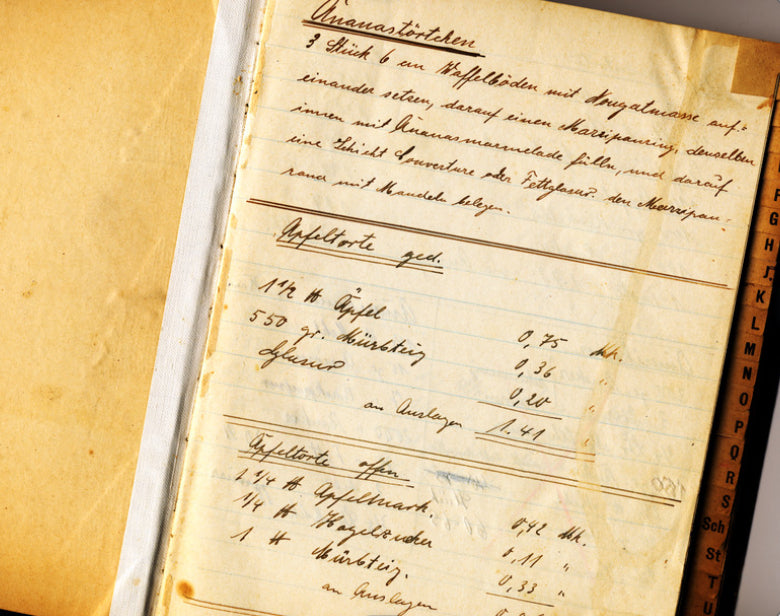 Ananastörtchen
3 Stück 6 cm Waffelböden mit Nougatmasse auf=
einander setzen, darauf einen Marzipanring, denselben
innen mit Ananasmarmelade fülln, und darauf
eine Schicht Couverture oder den Marzipan-
rand mit Mandeln belegen.
Apfeltorte ged.
1 1/2 ℔ Äpfel 0,75 Mk.
550 gr. Mürbteig 0,36 "
Glasur 0,20 "
an Auslagen 1.41 "
Apfeltorte offen
1 1/4 ℔ Apfelmark. 0,42 Mk.
1/4 ℔ Hagelzucker 0,11 "
1 ℔ Mürbteig. 0,33 "
an Auslagen
F
G
H
J
K
L
M
N
O
P
Q
R
S
Sch
St
T
U